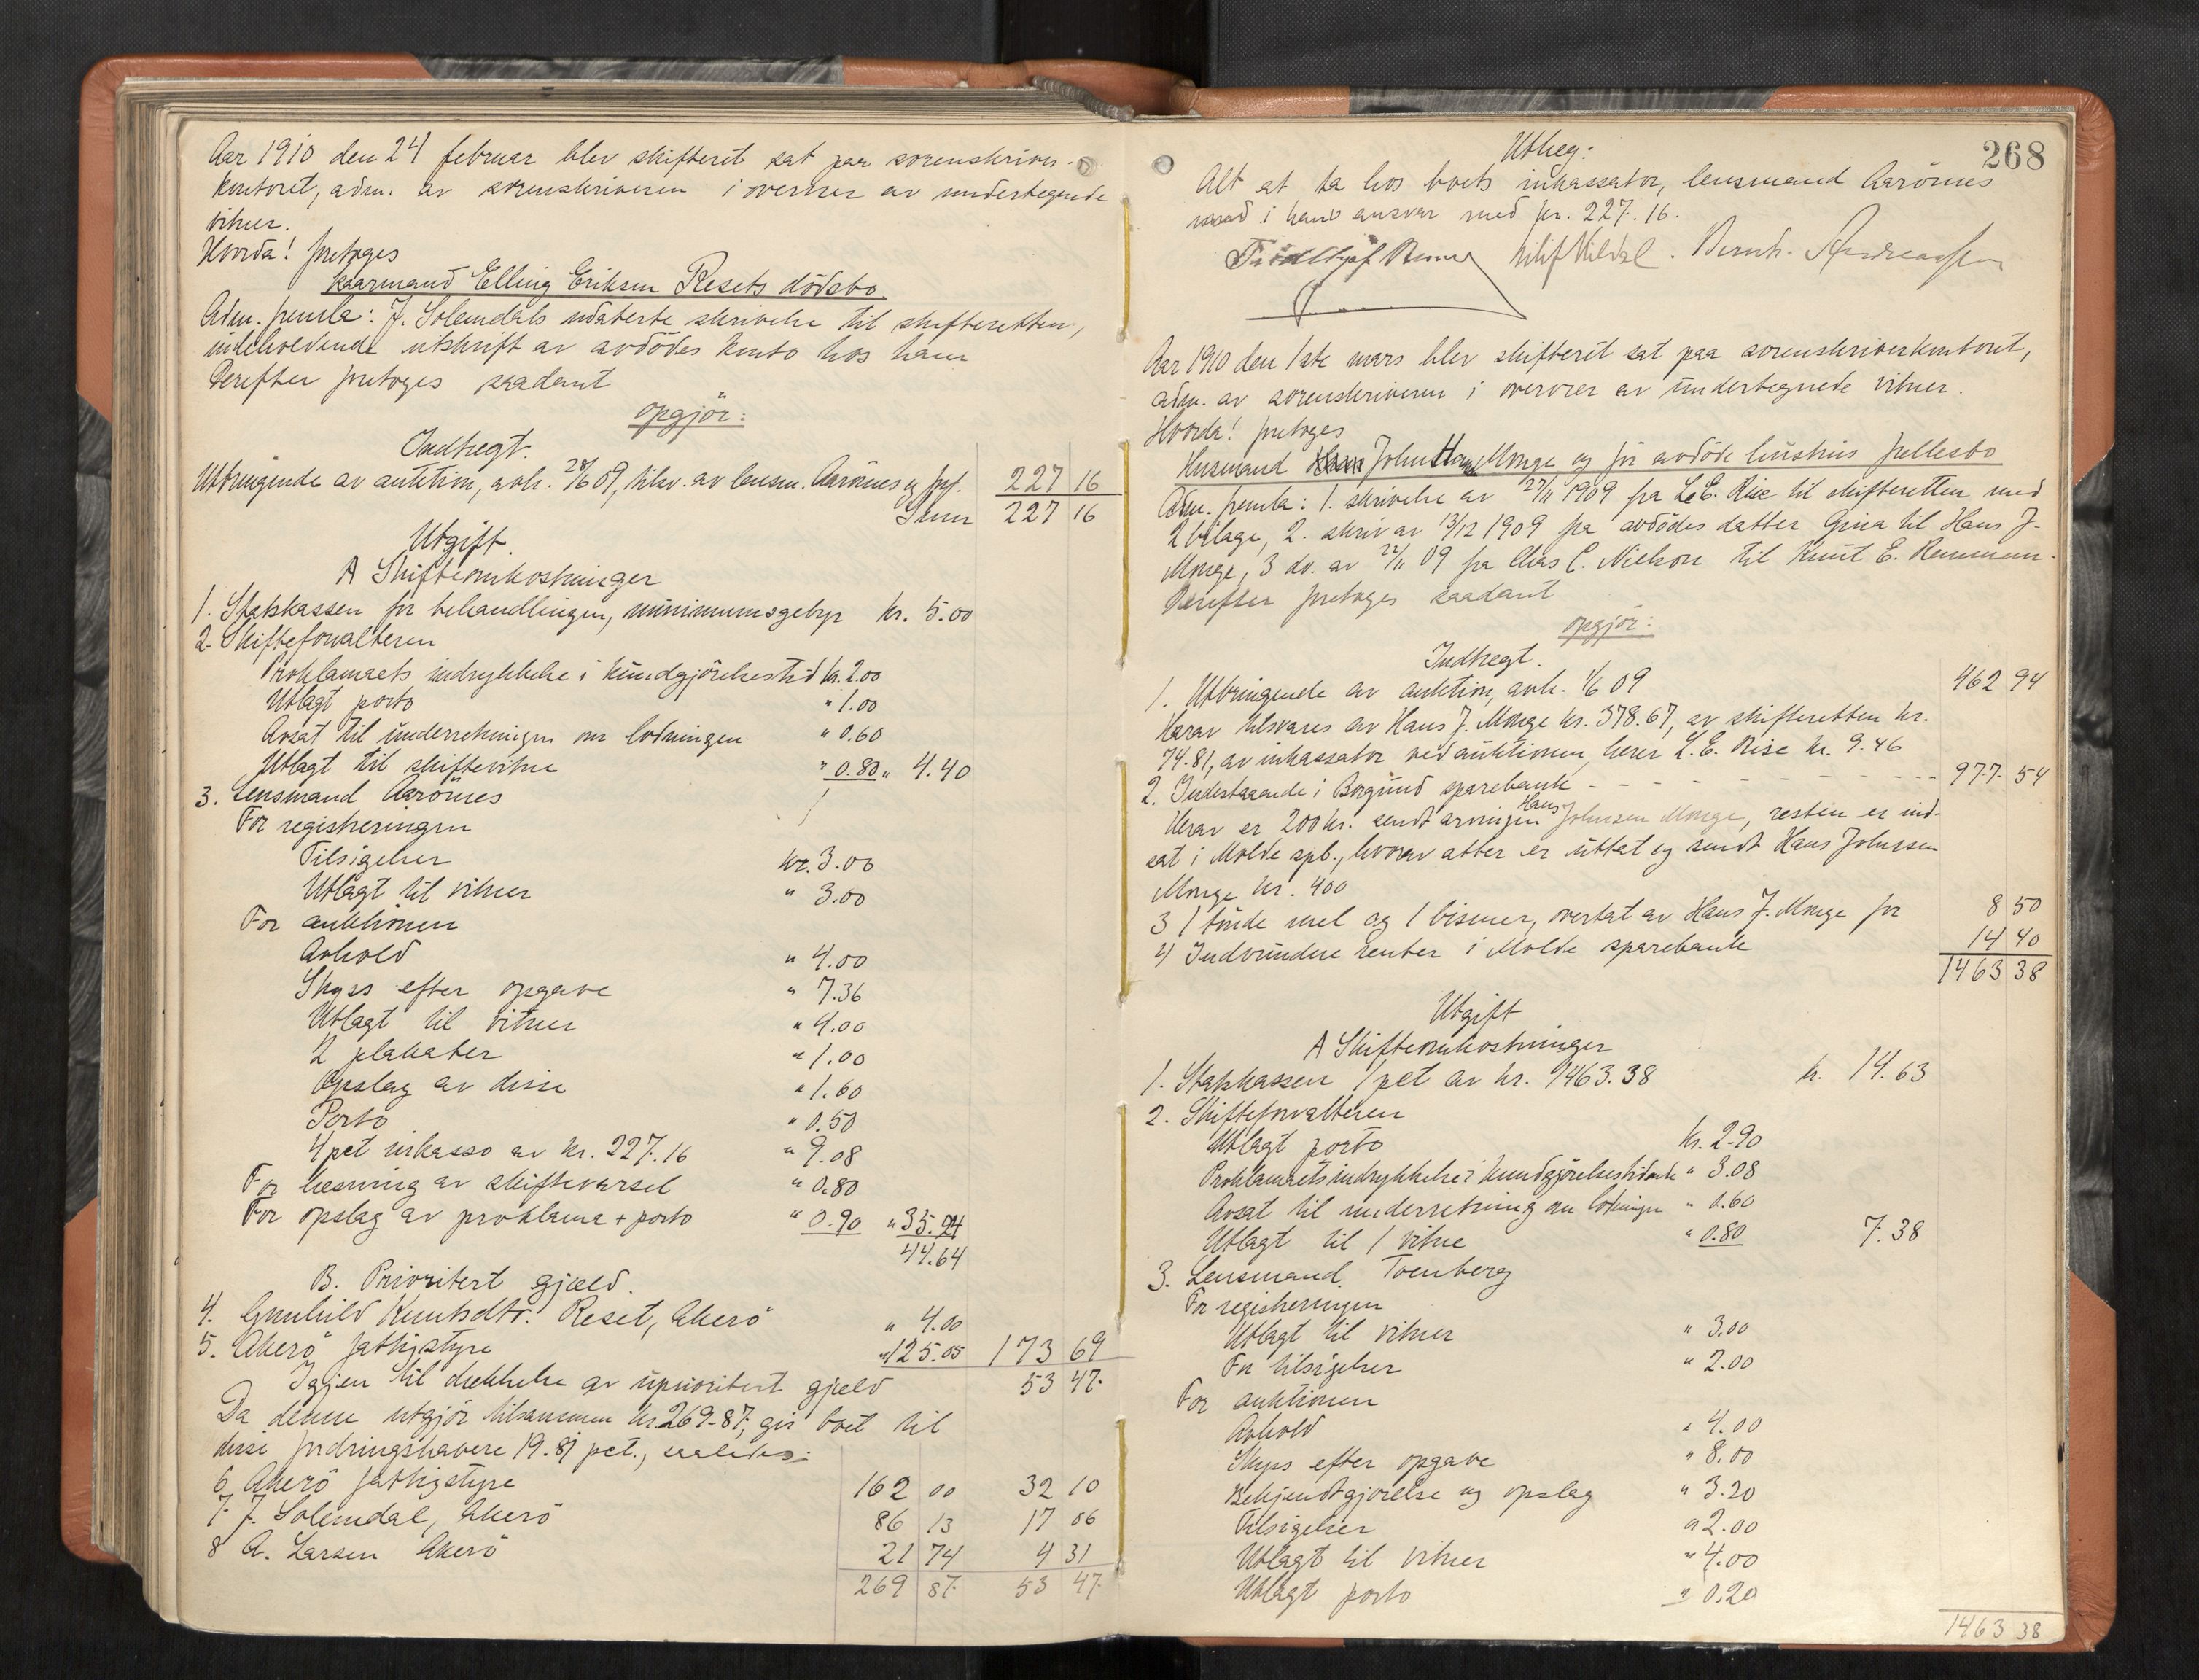 Aar 1910 den 24 februar blev skifteret sat paa sorenskriver-
kontoret, adm. av sorenskriveren i overvær av undertegnede
vitner.
Hvorda! foretoges
kaarmand Elling Eriksen Resets dødsbo
Adm. fremla: J. Solemdals udaterte skrivelse til skifteretten,
indeholdende utskrift av avdødes konto hos ham
Derefter foretoges saadant
opgjør:
Indtægt.
Utbringende av auktion, avh. 28/6 09, tilsv. av lensm. Aarønes 227 16
Sum 227 16
Utgift.
A Skifteomkostninger
1. Statskassen for behandlingen, minimumsgebyr kr. 5.00
2. Skifteforvalteren
Proklamaets indrykkelse i kundgjørelsestid kr. 2.00
Utlagt porto " 1.00
Avsat til underretningen om lodningen " 0.60
Utlagt til skiftevitne " 0.80 " 4.40
3. Lensmand Aarønes
For registreringen
Tilsigelser kr. 3.00
Utlagt til vitner " 3.00
For auktionen
Avhold " 4.00
Skyss efter opgave " 7.36
Utlagt til vitner " 4.00
2 plakater " 1.00
Opslag av disse " 1.60
Porto " 0.50
4 pct inkasso av kr. 227.16 " 9.08
For læsning av skiftevarsel " 0.80
For opslag av proklama + porto " 0.90 " 35.24
44.64
B. Prioritert gjæld.
4. Gunhild Knutsdtr. Reset, Akerø " 4.00
5. Akerø fattigstyre " 125.05 173 69
Igjen til dækkelse av uprioritert gjæld 53 47
Da denne utgjør tilsammen kr. 269.87, gir boet til
disse fordringshavere 19.81 pct., saaledes:
6 Akerø fattigstyre 162 00 32 10
7. J. Solemdal, Akerø 86 13 17 06
8 A. Larsen Akerø 21 74 4 31
269 87 53 47
268
Utlæg:
Alt at ta hos boets inkassator, lensmand Aarønes
i hans ansvar med kr. 227.16.
Bernh. Andreassen
Aar 1910 den 1ste mars blev skifteret sat paa sorenskriverkontoret,
adm. av sorenskriveren i overvær av undertegnede vitner.
Hvorda! foretoges
Husmand John Hansen Monge og før avdøde hustrus fællesbo
Adm. fremla: 1. skrivelse av 27/11 1909 fra L. E. Rise til skifteretten med
2 bilage, 2. skriv av 13/12 1909 fra avdødes datter Gina til Hans J.
Monge, 3 do. av 22/11 09 fra Chas C. Nielson til Knut E. Remmem.
Derefter foretoges saadant
opgjør:
Indtægt.
1. Utbringende av auktion, avh. 1/6 09 462 94
Herav tilsvares av Hans J. Monge kr. 378.67, av skifteretten kr.
74.81, av inkassator ved auktionen, herr L. E. Rise kr. 9.46
2. Indestaaende i Borgund sparebank - - - - 977 54
Herav er 200 kr. sendt arvingen Hans Johnsen Monge, resten er ind-
sat i Molde spb., hvorav atter er uttat og sendt Hans Johnsen
Monge kr. 400
3 1 tønde mel og 1 bismer, overtat av Hans J. Monge for 8 50
4) Indvundne renter i Molde sparebank 14 40
1463 38
Utgift
A Skifteomkostninger
1. Statskassen 1 pct av kr. 1463.38 kr. 14.63
2. Skifteforvalteren
Utlagt porto kr. 2.90
Proklamaets indrykkelse i kundgjørelsestidende " 3.08
Avsat til underretning om lodningen " 0.60
Utlagt til 1 vitne " 0.80 7.38
3. Lensmand Toenberg
For registreringen
Utlagt til vitner " 3.00
For tilsigelser " 2.00
For auktionen
Avhold " 4.00
Skyss efter opgave " 8.00
Bekjendtgjørelse og opslag " 3.20
Tilsigelser " 2.00
Utlagt til vitner " 4.00
Utlagt porto " 0.20
1463 38